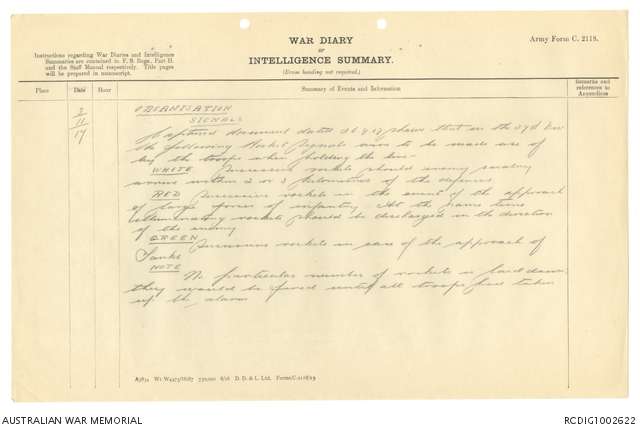 WAR DIARY
or
INTELLIGENCE SUMMARY.
(Erase heading not required.)
Army Form C. 2118.
Instructions regarding War Diaries and Intelligence
Summaries are contained in F. S. Regs., Part II.
and the Staff Manual respectively. Title pages
will be prepared in manuscript.
Place
Date
Hour
Summary of Events and Information
Remarks and
references to
Appendices
2
11
17
ORGANISATION
SIGNALS
A captured document dated shows that in the Div
the following Rocket signals were to be made use of
by the troops when holding the line
WHITE Successive rockets should enemy
within 2 or 3 kilometres of the defences
RED Successive rockets in the event of the approach
of large forces of infantry. At the same time
illuminating rockets should be discharged in the direction
of the enemy
GREEN
Successive rockets in case of the approach of
Tanks
NOTE
No particular number of rockets is laid down
they would be fired until all troops had taken
up the alarm
D. D. & L. Ltd.
AUSTRALIAN WAR MEMORIAL
RCDIG1002622